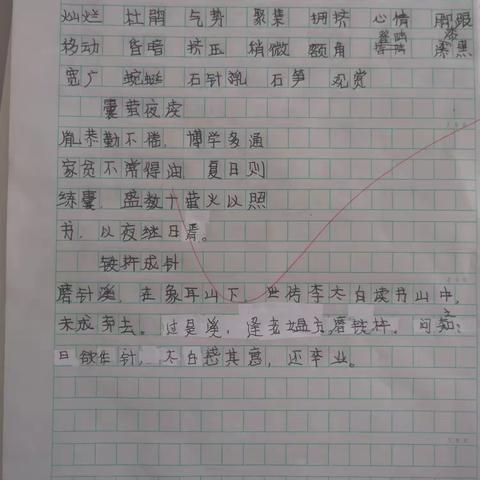 灿烂 杜鹃 气势 聚集 拥挤 心情 脚跟
移动 昏暗 挤压 稍微 额角 漆黑
宽广 蜿蜒 石钟乳 石笋 观赏
囊萤夜读
胤恭勤不倦，博学多通
家贫不常得油，夏日则
练囊，盛数十萤火以照
书，以夜继日焉。
铁杵成针
磨针溪，在象耳山下，世传李太白读书山中，
未成弃去。过是溪，逢老媪方磨铁杵。问之：
曰欲作针，太白感其意，还卒业。